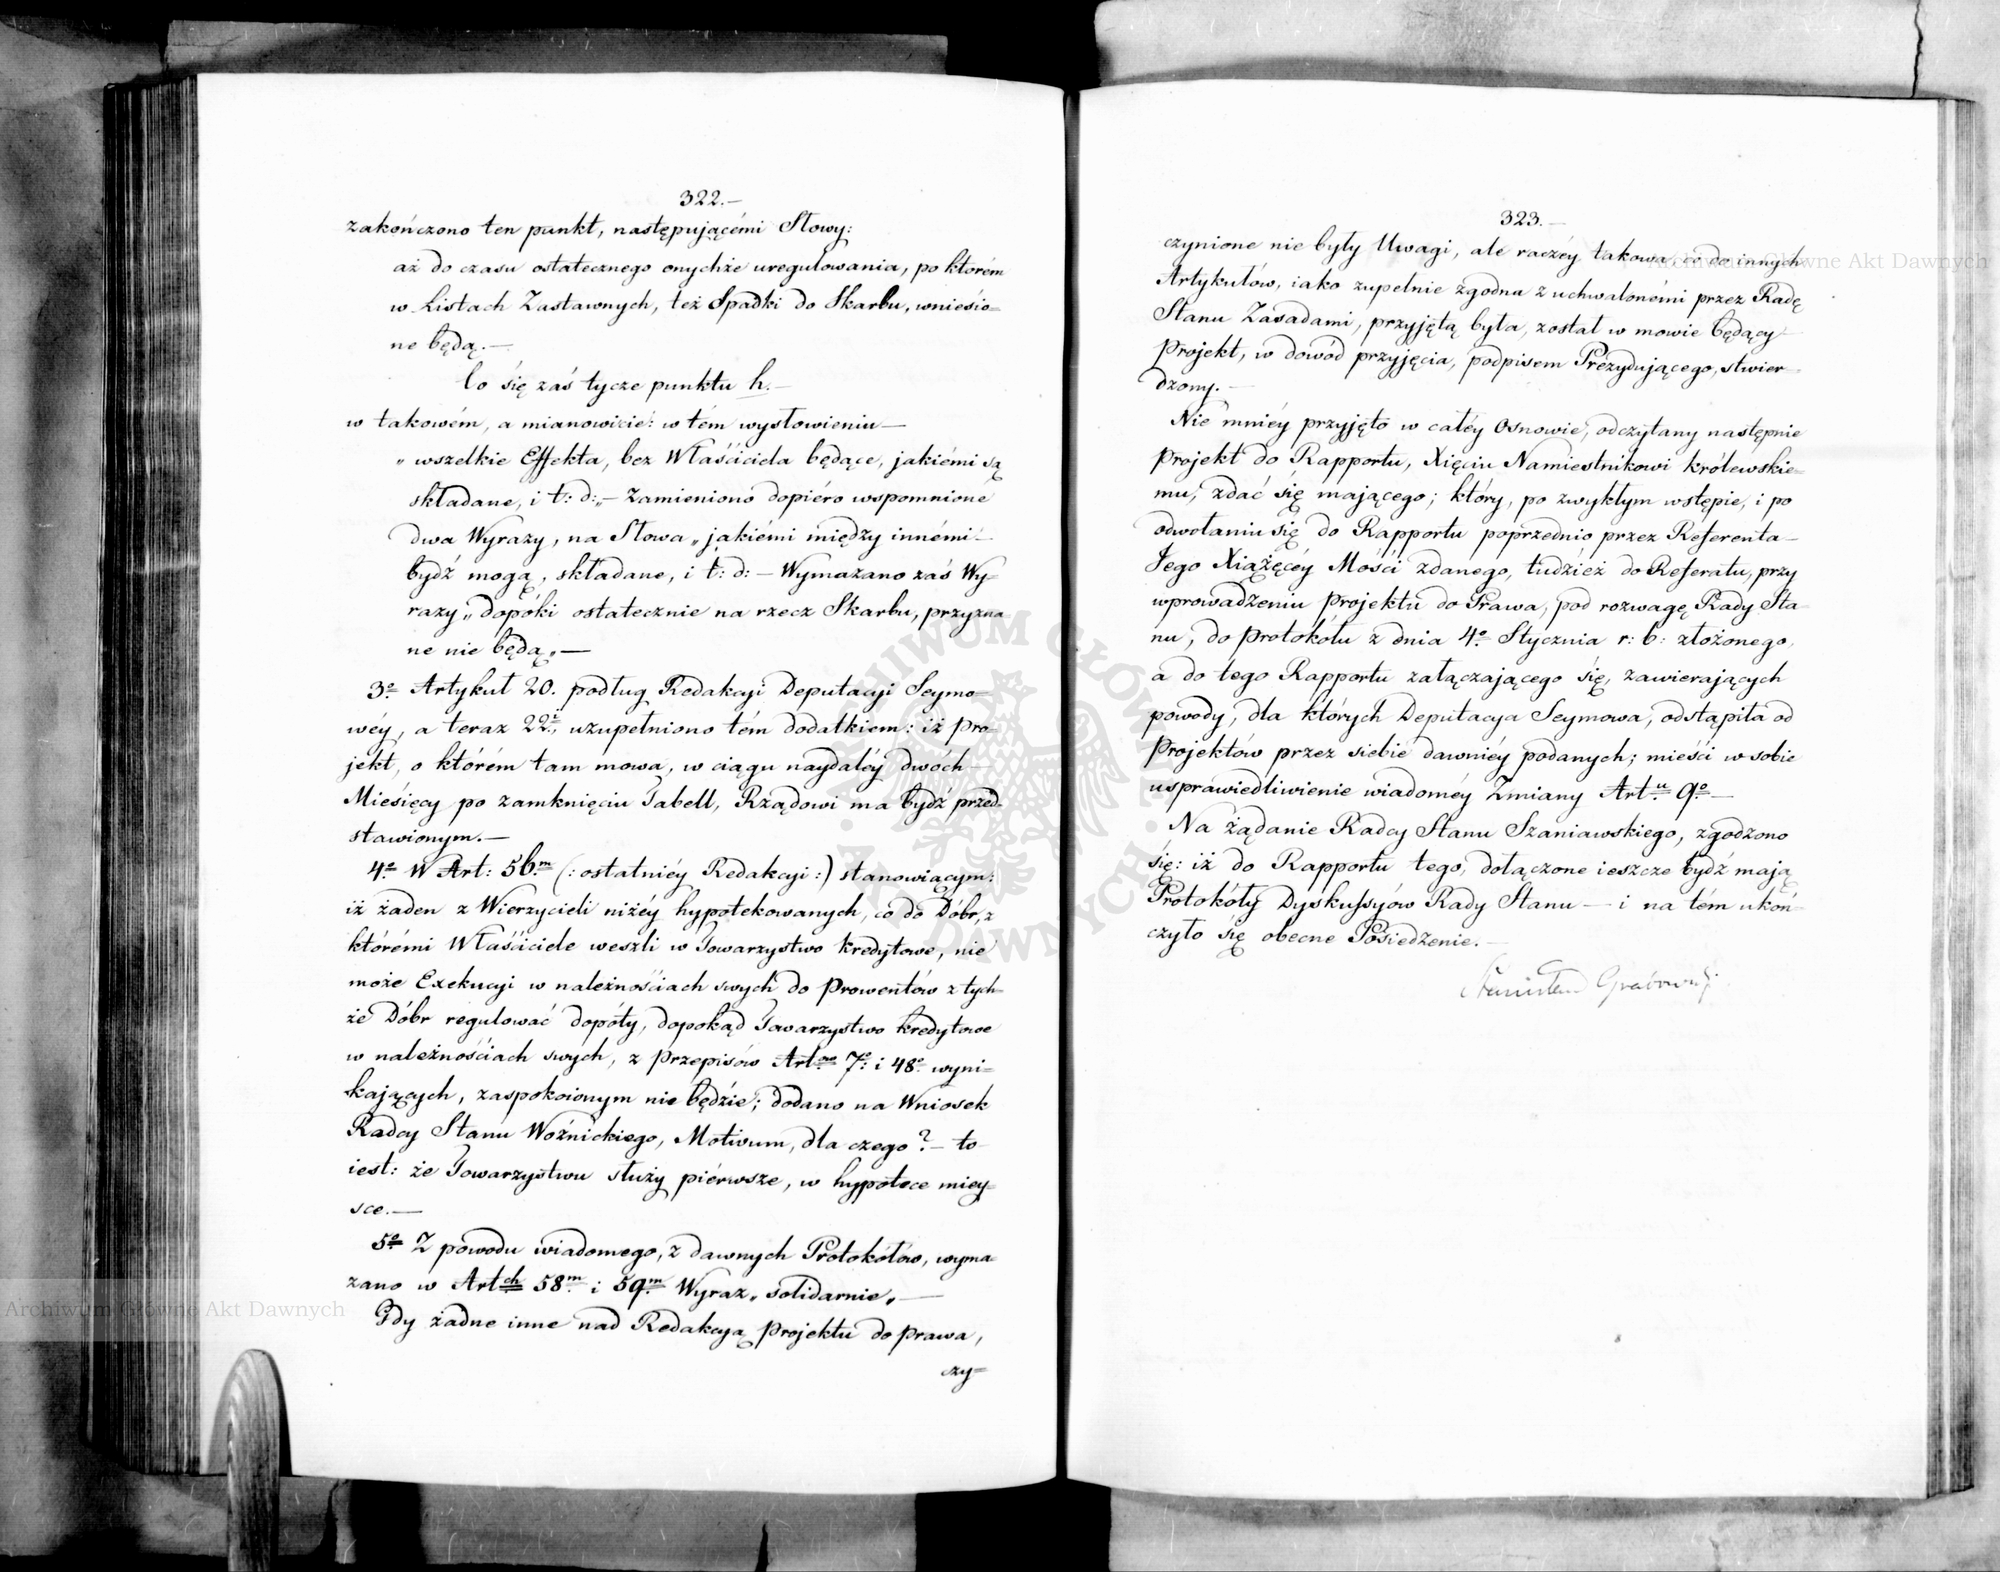 322.—
zakończono ten punkt, następującémi Słowy:
aż do czasu ostatecznego onychże uregulowania, po którém
w Listach Zastawnych, też Spadki do Skarbu, wniesio=
ne będą.—
Co się zaś tycze punktu h.—
w takowém, a mianowicie: w tém wysłowieniu—
„ wszelkie Effekta, bez Właściciela będące, jakiémi są
składane, i t: d:„— zamieniono dopiéro wspomnione
dwa Wyrazy, na Słowa „jakiémi między innémi—
bydź mogą, składane, i t: d:— Wymazano zaś Wy=
razy „ dopóki ostatecznie na rzecz Skarbu, przyzna
ne nie będą „—
3o Artykuł 20. podług Redakcyi Deputacyi Seymo=
wéy, a teraz 22i, uzupełniono tém dodatkiem: iż Pro=
jekt, o którém tam mowa, w ciągu naydaléy dwóch—
Miesięcy po zamknięciu Tabell, Rządowi ma bydź przed=
stawionym.—
4o W Art: 56m (: ostatniéy Redakcyi :) stanowiącym:
iż żaden z Wierzycieli niżéy hypotekowanych, co do Dóbr, z
którémi Właściciele weszli w Towarzystwo kredytowe, nie
może Exekucyi w należnościach swych do Prowentów z tych=
że Dóbr regulować dopóty, dopokąd Towarzystwo kredytowe
w należnościach swych, z przepisów Artow 7o i 48o wyni=
kających, zaspokoionym nie będzie; dodano na Wniosek
Radcy Stanu Woźnickiego, Motivum, dla czego?— to
iest: że Towarzystwu służy piérwsze, w hypotece miey=
sce.—
5o Z powodu wiadomego, z dawnych Protokółów, wyma=
zano w Artch 58m i 59m Wyraz „ solidarnie „—
Gdy żadne inne nad Redakcyą Projektu do prawa,
czy=
323.—
czynione nie były Uwagi, ale raczéy takowa, co do innych
Artykułów, iako zupełnie zgodna z uchwalonémi przez Radę
Stanu Zasadami, przyjętą była, został w mowie będący—
Projekt, w dowód przyjęcia, podpisem Prezydującego, stwier=
dzony.—
Nie mniéy przyjęto w całéy Osnowie, odczytany następnie
Projekt do Rapportu, Xięciu Namiestnikowi królewskie=
mu, zdać się mającego; który, po zwykłym wstępie, i po
odwołaniu się do Rapportu poprzednio przez Referenta—
Jego Xiążęcéy Mości zdanego, tudzież do Referatu, przy
wprowadzeniu Projektu do Prawa, pod rozwagę Rady Sta=
nu, do protokółu z dnia 4o Stycznia r: b: złożonego,
a do tego Rapportu załączającego się, zawierających
powody, dla których Deputacya Seymowa, odstąpiła od
Projektów przez siebie dawniéy podanych; mieści w sobie
usprawiedliwienie wiadoméy Zmiany Artu 9o—
Na żądanie Radcy Stanu Szaniawskiego, zgodzono
się: iż do Rapportu tego, dołączone ieszcze bydź mają
Protokóły Dyskussyów Rady Stanu— i na tém ukoń=
czyło się obecne Posiedzenie.—
Stanisław Grabowski
Archiwum Główne Akt Dawnych
Archiwum Główne Akt Dawnych
ARCHIWUM GŁÓWNE AKT DAWNYCH